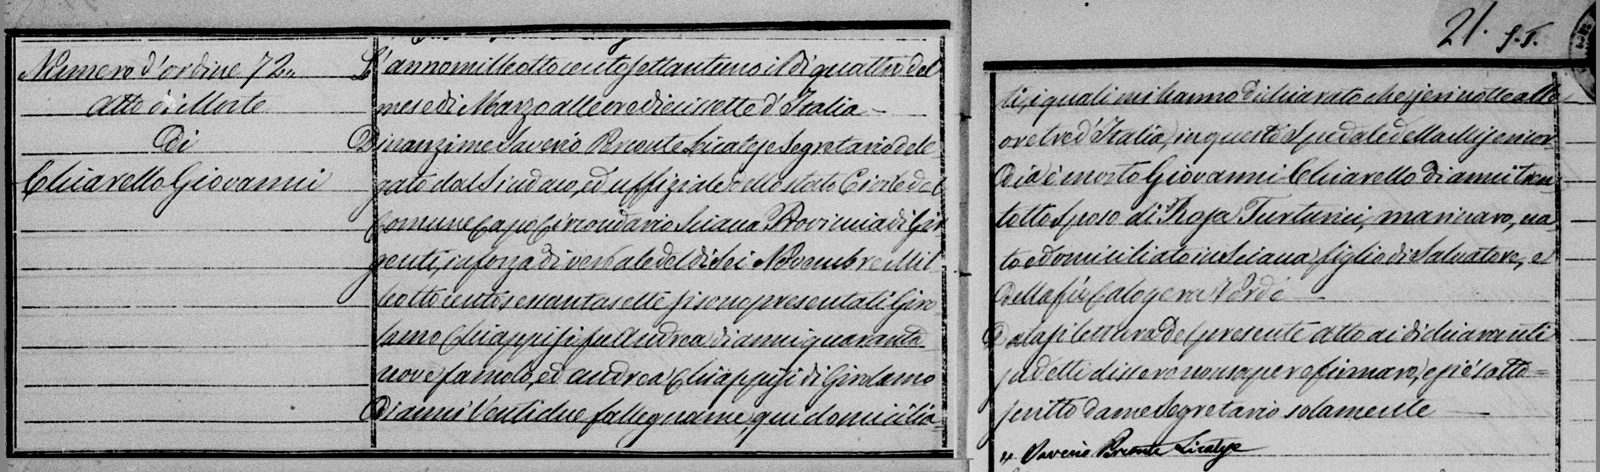 Numero d'ordine 72,,
Atto di Morte
Di
Chiarello Giovanni
L'anno milleottocentosettantuno il di quattro del
mese di Marzo alle ore diecissette d'Italia
Dinanzi me Saverio Bronte Licalzi Segretario dele
gato dal Sindaco, ed uffiziale dello Stato Civile del
Comune Capo Circondario Sciacca Provincia di Gir
genti, in forza di verbale del di sei Novembre Mil
leottocentosessantasette si sono presentati Giro
lamo Chiappisi fu Andrea di anni quaranta
nove famolo, ed Andrea Chiappisi di Girolamo
Di anni ventidue fallegname, qui domicilia-
21. S.T.
ti, i quali mi hanno dichiarato che jeri notte alle
ore tre d'Italia, in questo Spedale della Misericor
dia è morto Giovanni Chiarello di anni tren
totto sposo di Rosa Turturici, marinaro, na
to e domiciliato in Sciacca, figlio di Salvatore, e
della fu Calogera Nardò
Datasi lettura del presente atto ai dichiaranti
sudetti dissero non sapere firmare, e si è sotto=
scritto da me Segretario solamente
,, Saverio Bronte Licalzi